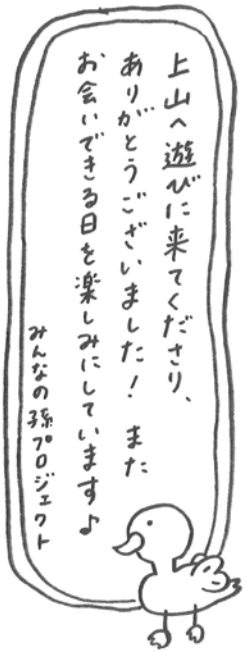 上山へ遊びに来てくださり、
ありがとうございました！ また
お会いできる日を楽しみにしています♪
みんなの孫プロジェクト